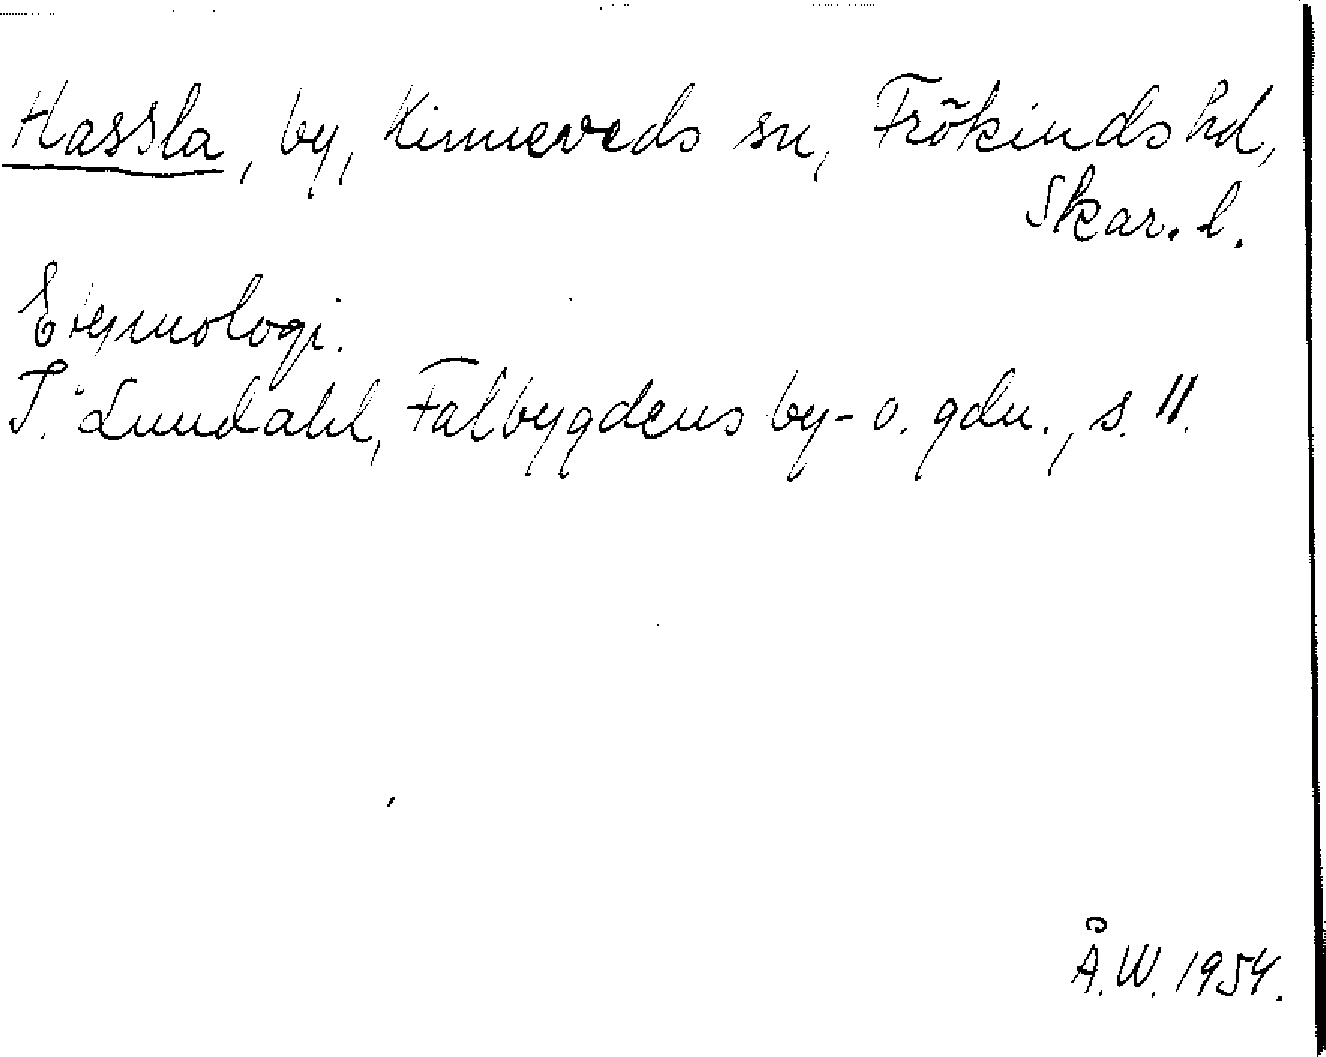 Hassla, by, Kinneveds sn, Frökinds hd,
Skar. l.
Etymologi.
I. Lundahl, Falbygdens by- o. gdn., s. 11.
Å.W. 1954.